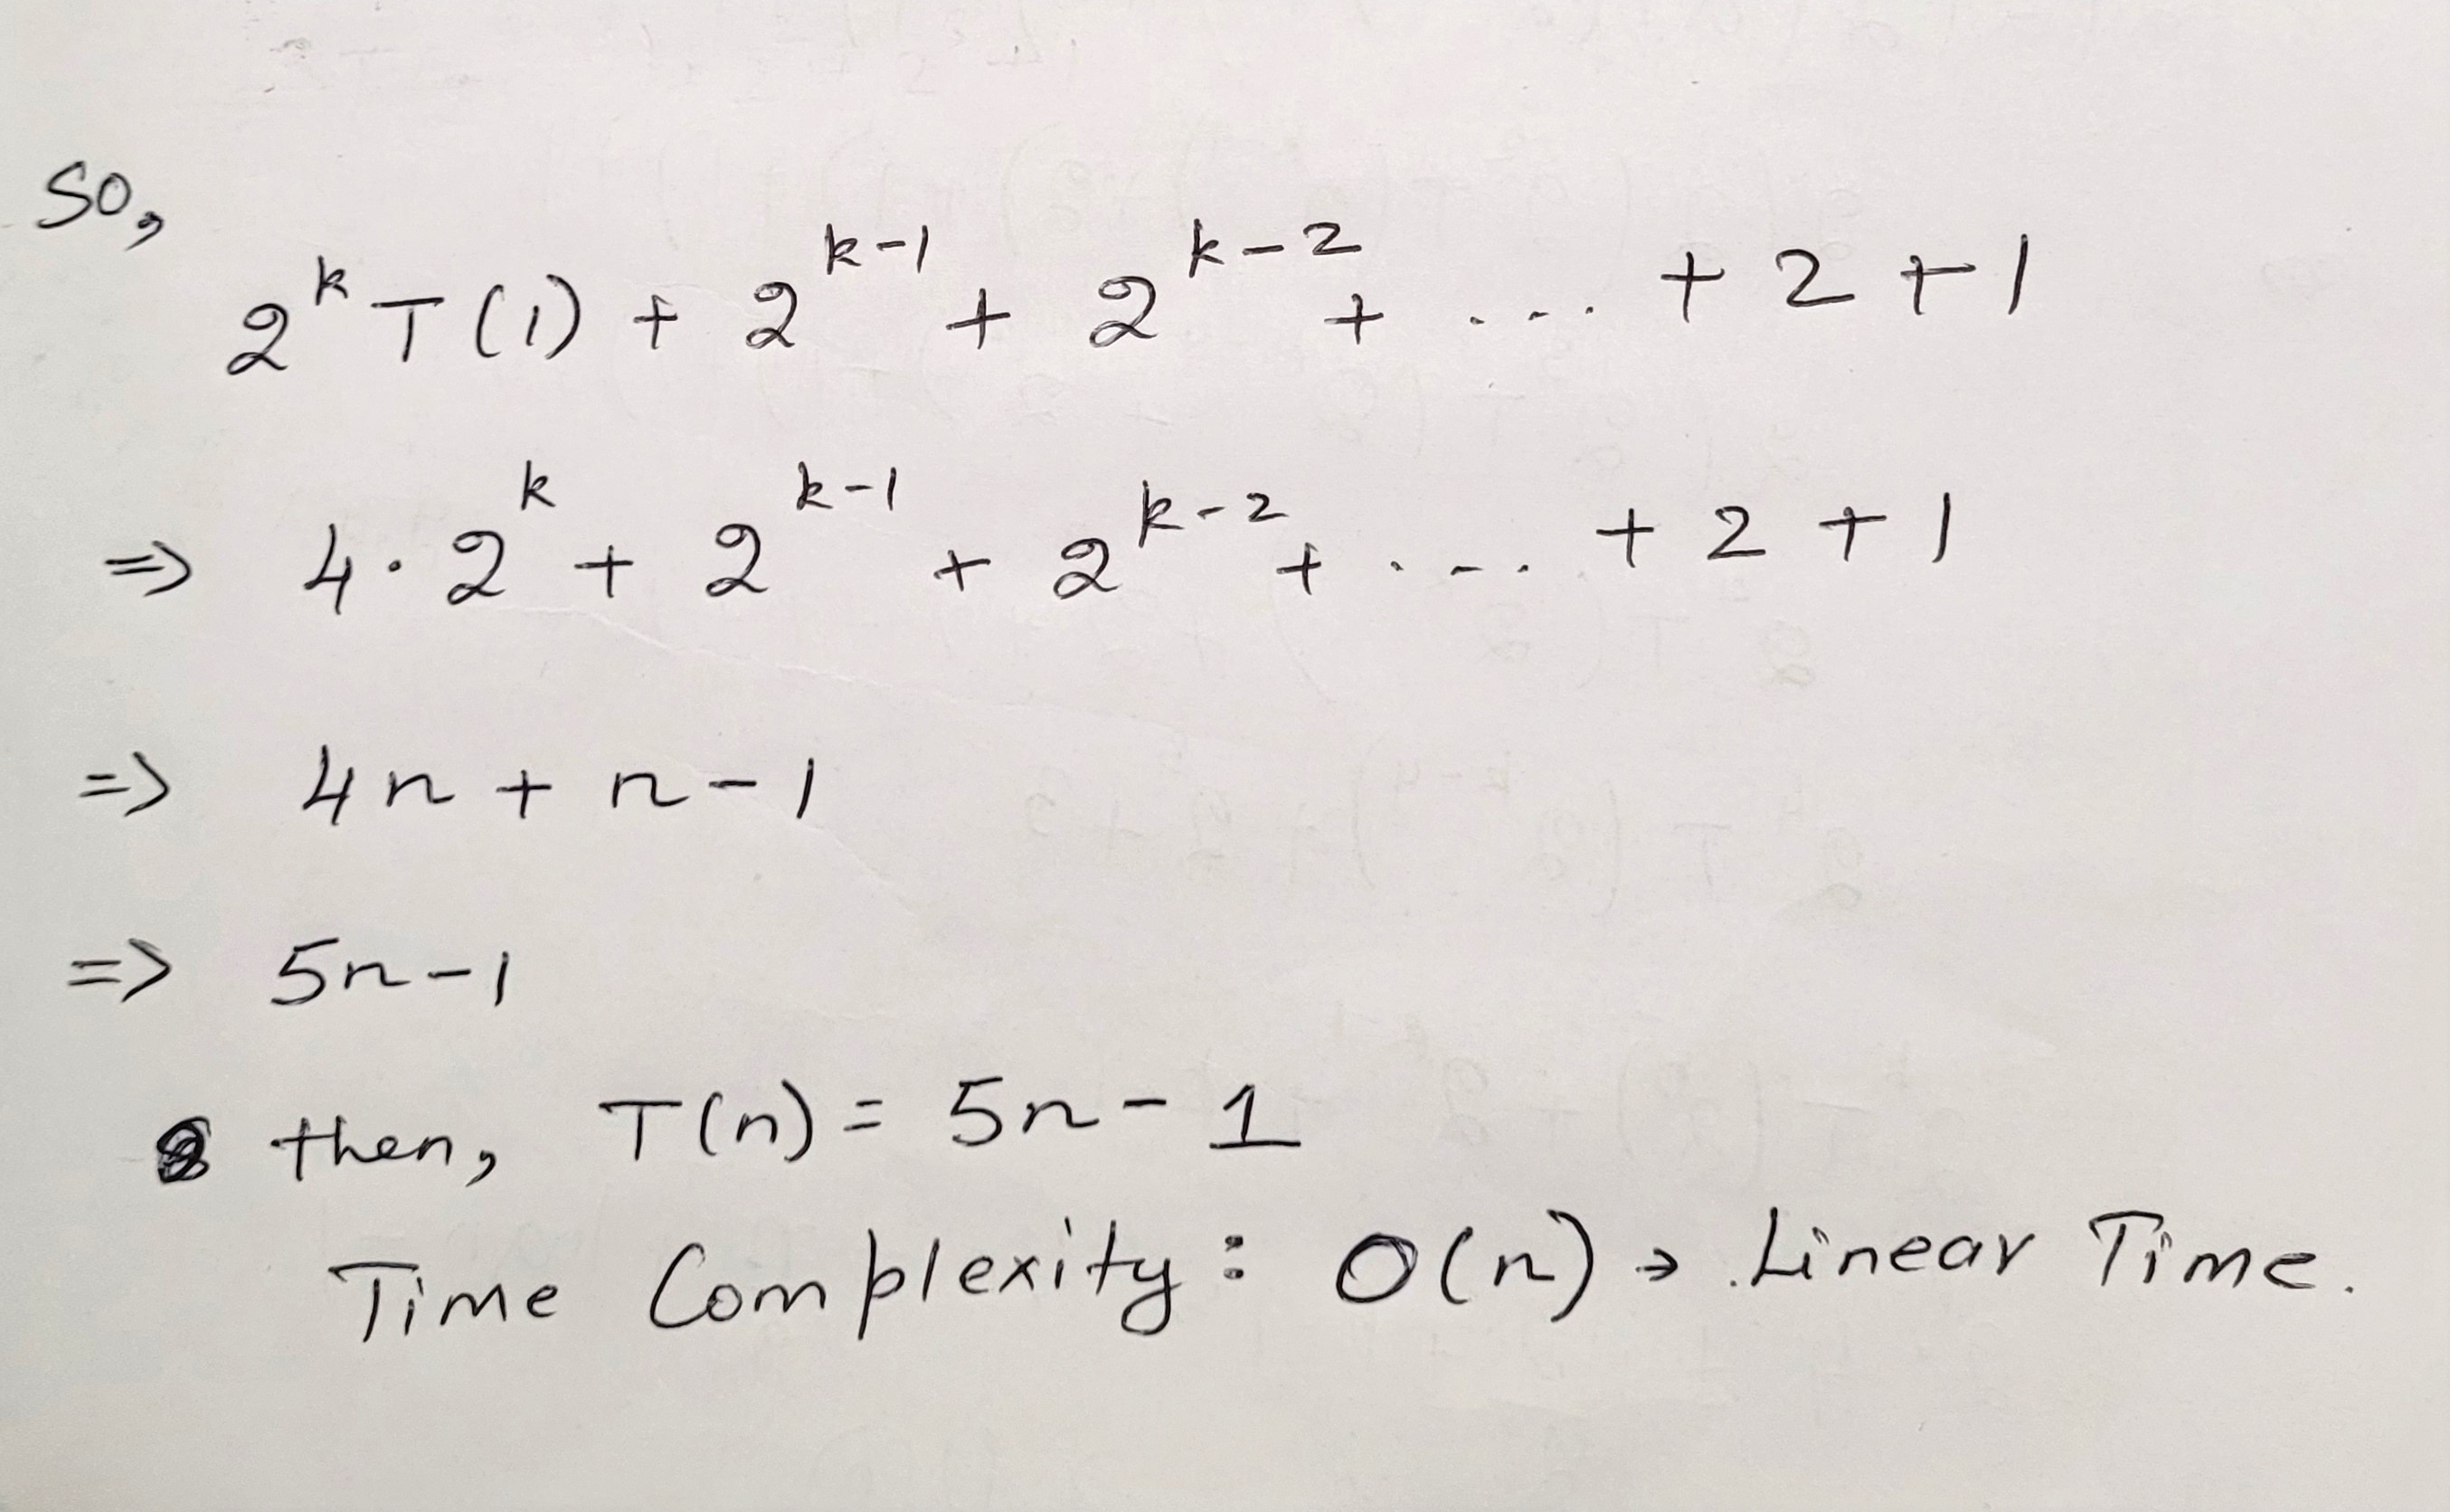 So,
2^k T(1) + 2^{k-1} + 2^{k-2} + .... + 2 + 1
=> 4·2^k + 2^{k-1} + 2^{k-2} + .... + 2 + 1
=> 4n + n - 1
=> 5n - 1
then, T(n) = 5n - 1
Time Complexity: O(n) → Linear Time.